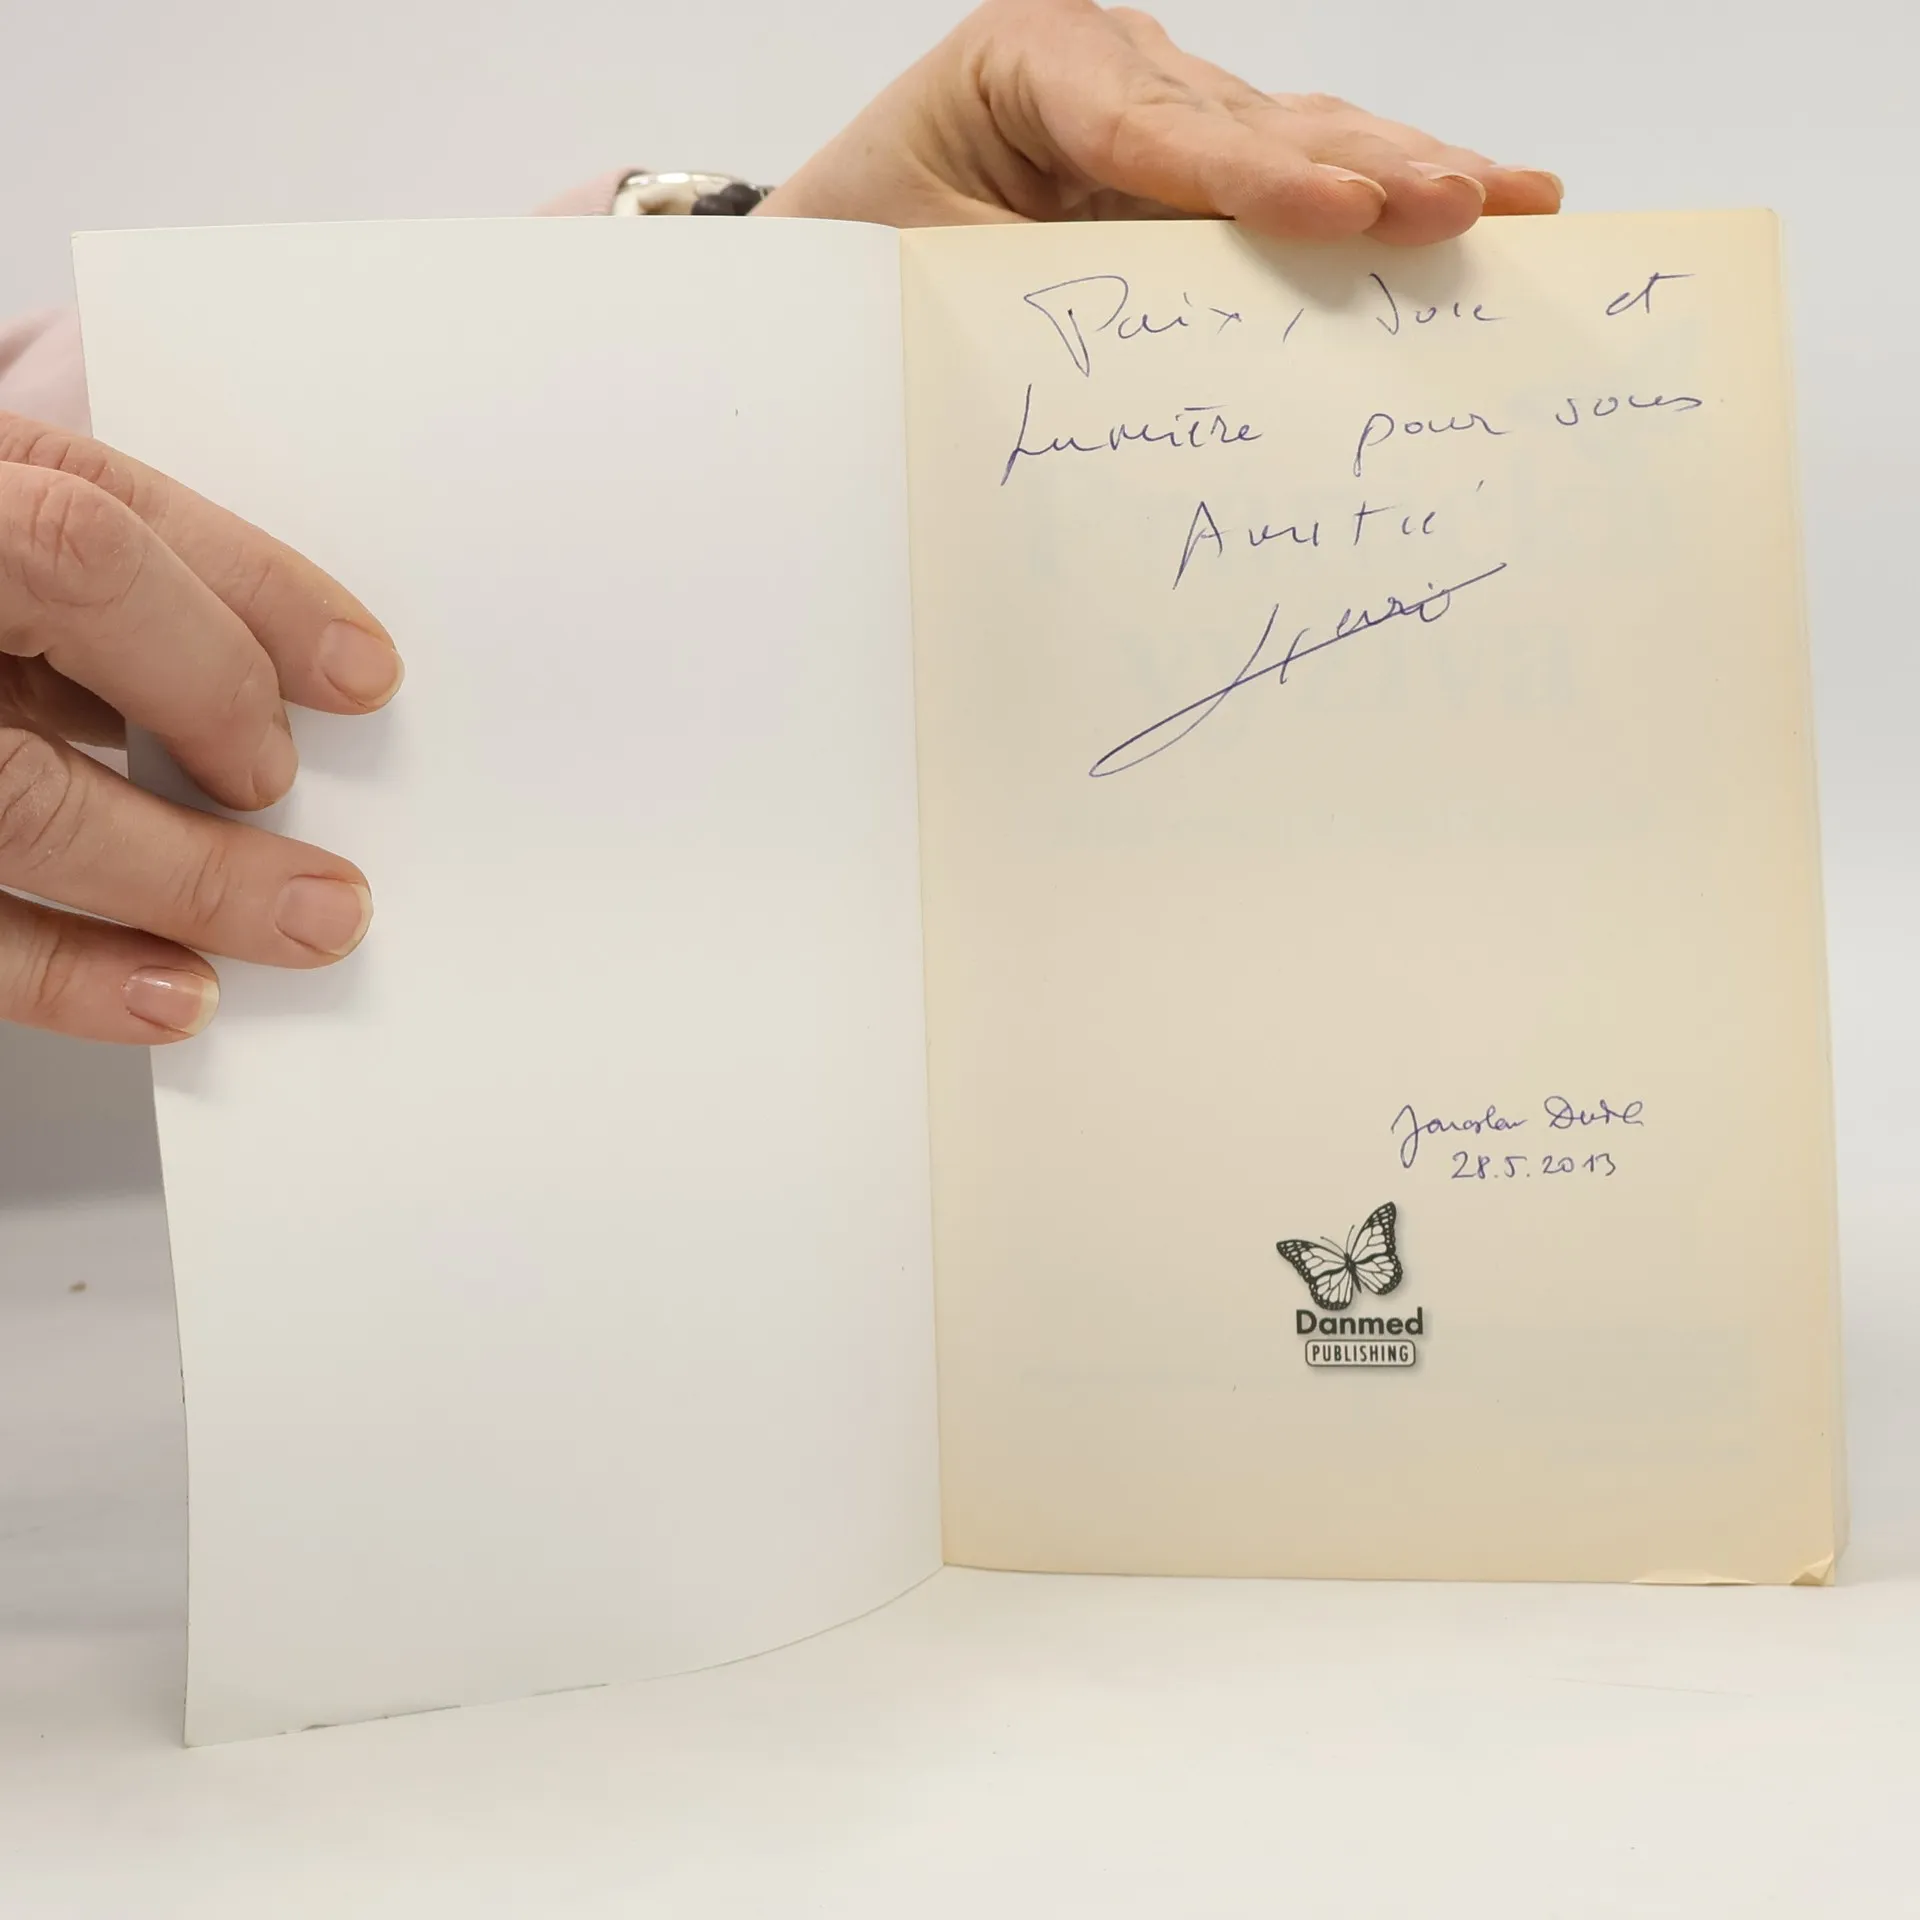 Paix, Joie et
Lumière pour vous
Amitié
Jaroslav Dušek
28.5.2013
Danmed
PUBLISHING